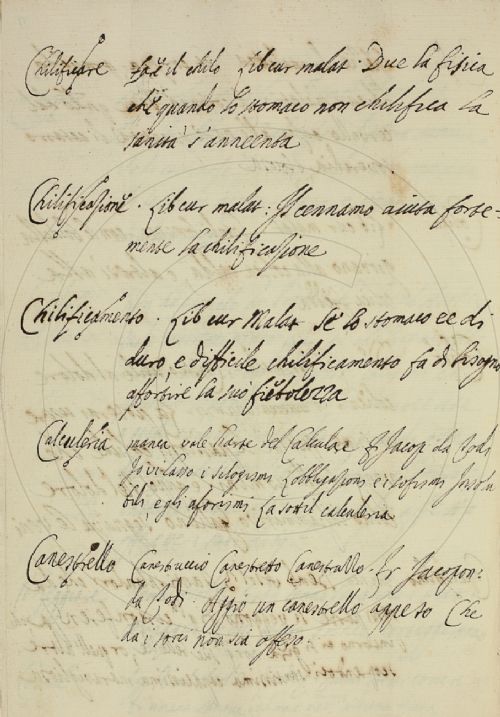 Chilificare fare il chilo Lib cur malat. Due la fisica
che quando lo stomaco non chilifica la
sanità s'annienta
Chilificasione. Lib cur malat: Il cennamo aiuta forte-
mente la chilificasione
Chilificamento. Lib cur Malat Se lo stomaco ee di
duro, e difficile chilificamento fa di bisogno
afforsire la suo fiebolezza
Calculeria manca, vale l'arte del Calculae Fr Jacop da Todi
lasso i silogismi l'obbligasioni e i sofismi Insolu
bili, e gli aforismi La sottil calculeria
Canestrello Canestruccio Canestreto Fr Jacopon:
da Todi. un canestrello appeso Che
da i sorci non sia offeso.